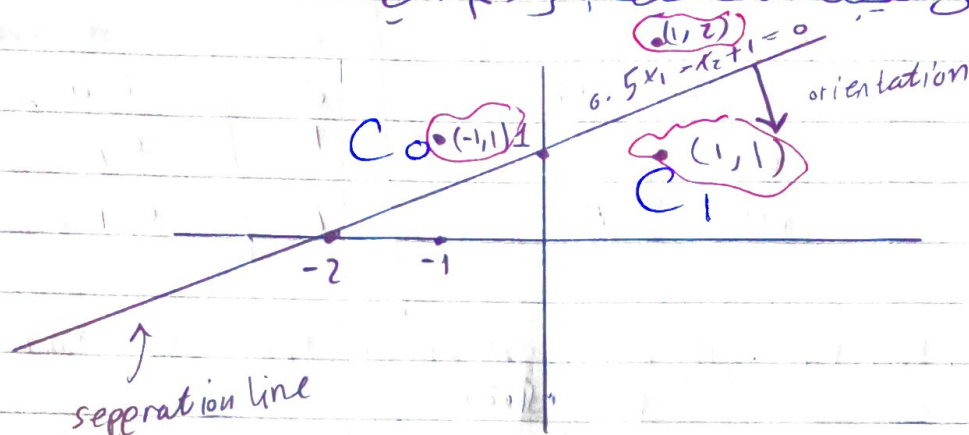 (1, 2)
0.5x₁ - x₂ + 1 = 0
orientation
C₀ (-1,1) 1
(1,1)
C₁
-2 -1
sepᴇration line